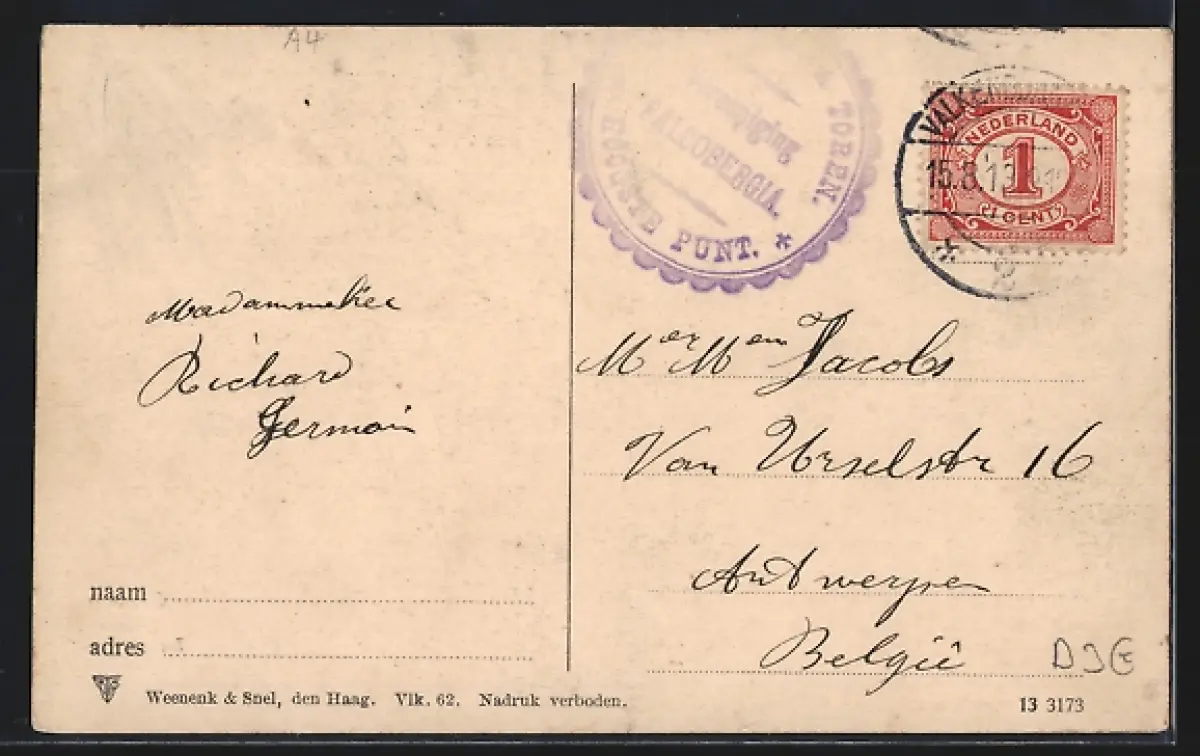 A4
TOREN.
FALCOBERGIA.
HOOGSTE PUNT. *
VALKE
15.8.13
NEDERLAND
1
(1 CENT)
Madammeke
Richard
Germain
Mer Mem Jacobs
Van Urselstr 16
Antwerpen
België
naam
adres
Weenenk & Snel, den Haag. Vlk. 62. Nadruk verboden.
13 3173